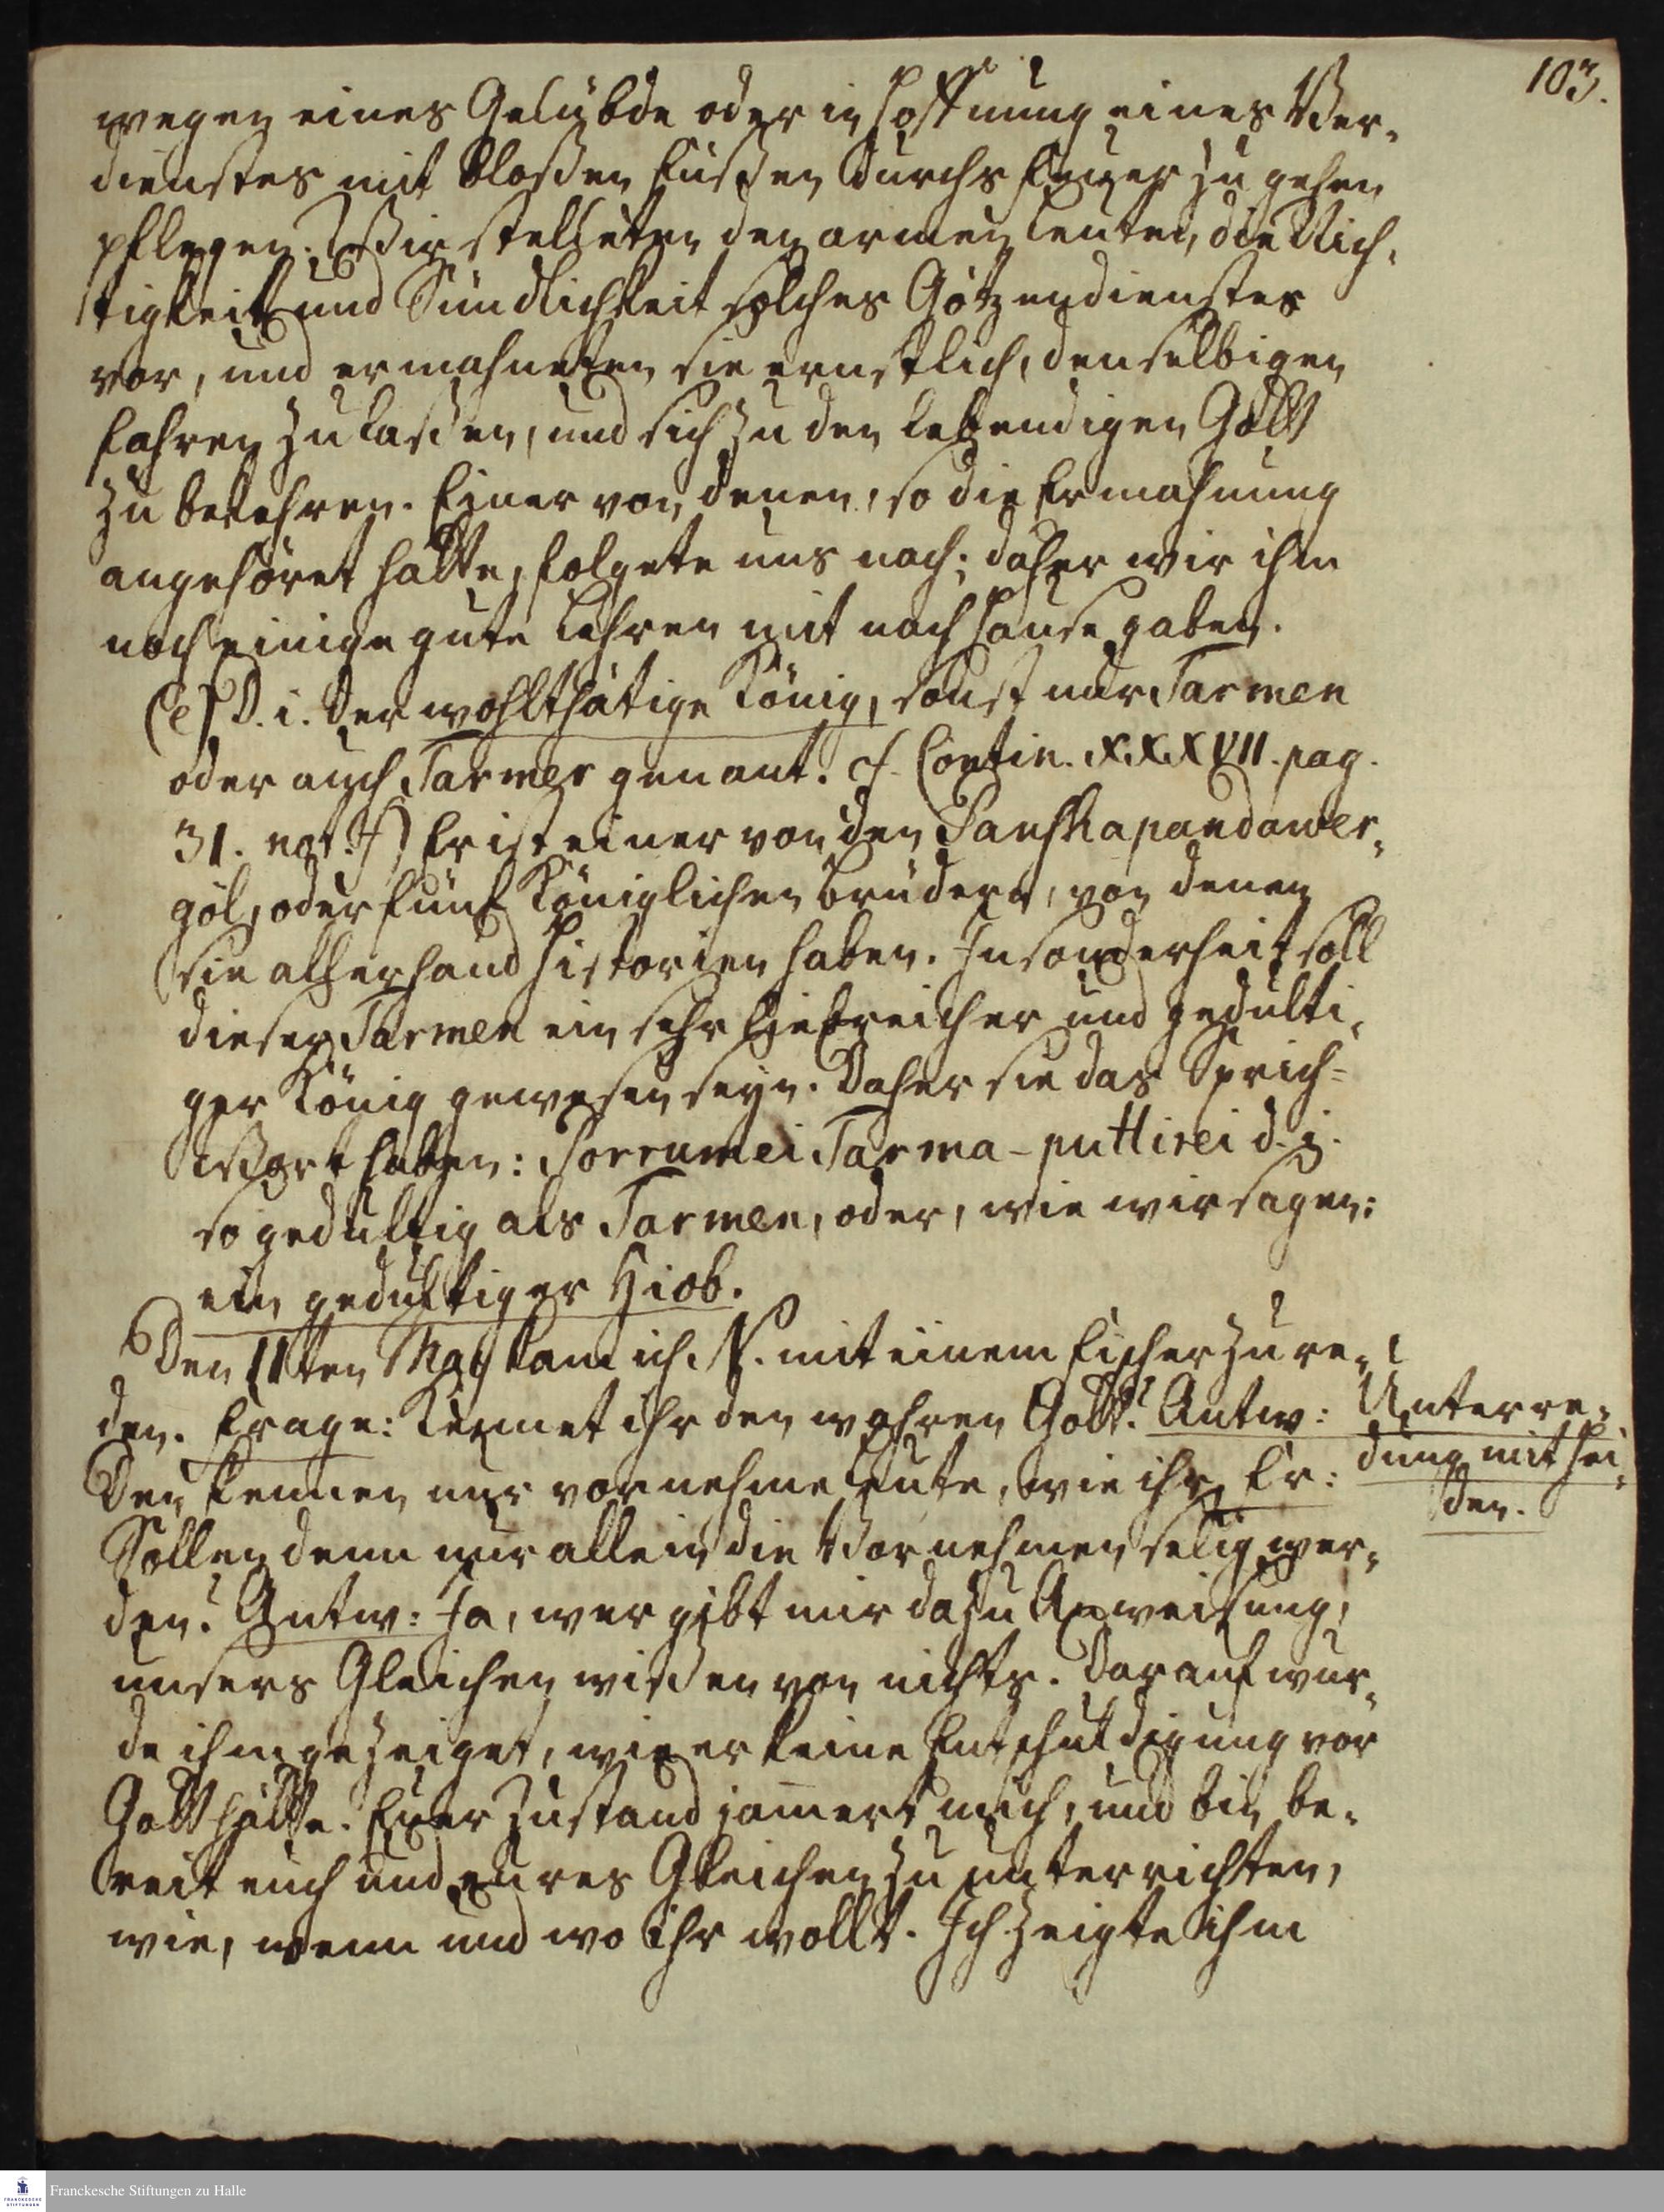 103.
wegen eines Gelübde oder in Hoffnung eines Ver-
dienstes mit bloßen Füßen durchs Feuer zu gehen
pflegen. Wir stelleten den armen Leuten, die Nich-
tigkeit und Sündlichkeit solches Götzendienstes
vor, und ermahneten sie ernstlich, denselbigen
fahren zu laßen, und sich zu den lebendigen Gott
zu bekehren. Einer von denen, so die Ermahnung
angehöret hatte, folgete uns nach; daher wir ihm
noch einige gute Lehren mit nach Hause gaben.
(e) D. i. der wohlthätige König, sonst nur Tarmen
oder auch Tarmer genant. cf. Contin. XXXVII. pag.
31. not. f) Er ist einer von den Panshapandawer-
göl, oder fünf Königlichen Brüdern, von denen
sie allerhand Historien haben. Insonderheit soll
dieser Tarmen ein sehr liebreicher und gedulti-
ger König gewesen seyn. Daher sie das Sprich-
Wort haben: Porrumei Tarma-puttirei d. i.
so gedultig als Tarmen, oder, wie wir sagen:
ein gedultiger Hiob.
Den 11ten May kam ich N. mit einem Fischer zu re-
den. Frage: Kennet ihr den wahren Gott? Antw:
Den kennen nur vornehme Leute, wie ihr. Fr:
Sollen denn nur allein die Vornehmen selig wer-
den? Antw: Ja, wer gibt mir dazu Anweisung,
unsers Gleichen wißen von nichts. Darauf wur-
de ihm gezeiget, wie er keine Entschuldigung vor
Gott hätte. Euer Zustand jam̄ert mich, und bin be-
reit euch und eures Gleichen zu unterrichten,
wie, wenn und wo ihr wollt. Ich zeigte ihm
Unterre-
dung mit Hei-
den.
Franckesche Stiftungen zu Halle
FRANCKESCHE
STIFTUNGEN